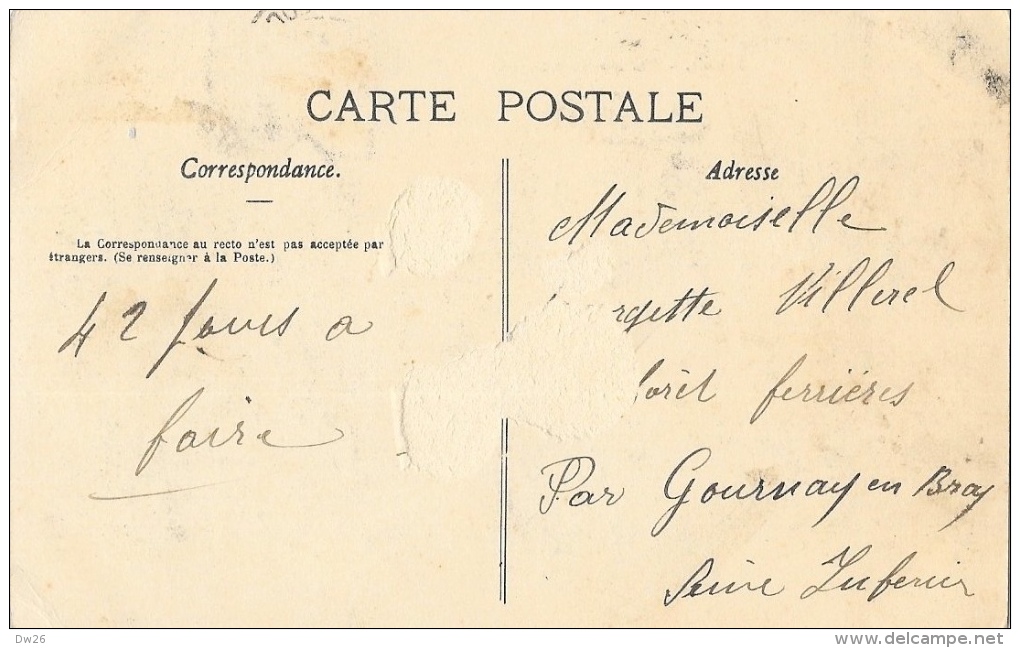 CARTE POSTALE
Correspondance.
La Correspondance au recto n'est pas acceptée par
étrangers. (Se renseigner à la Poste.)
42 Jours a
faire
Adresse
Mademoiselle
rgette Villerel
forêt ferriéres
Par Gournay en Bray
Seine Inferieur
Dw26
www.delcampe.net